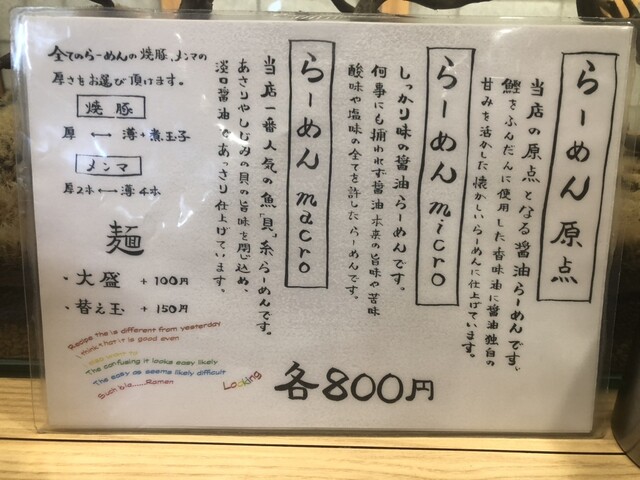 らーめん 原点
当店の原点となる醤油らーめんです。
鰹をふんだんに使用した香味油に醤油独自の
甘みを活かした懐かしいらーめんに仕上げています。
らーめん micro
しっかり味の醤油らーめんです。
何事にも捕われず醤油本来の旨味や苦味
酸味や塩味の全てを許したらーめんです。
らーめん macro
当店一番人気の魚「貝」系らーめんです。
あさりやしじみの貝の旨味を閉じ込め、
淡口醤油であっさり仕上げています。
全てのらーめんの焼豚、メンマの
厚さをお選び頂けます。
焼豚
厚 ←→ 薄+煮玉子
メンマ
厚2本 ←→ 薄4本
麺
・大盛 +100円
・替え玉 +150円
Recipe the is different from yesterday
I think that it is good even
The confusing it looks easy likely
The easy as seems likely difficult
Such bia......Ramen
Looking
各800円